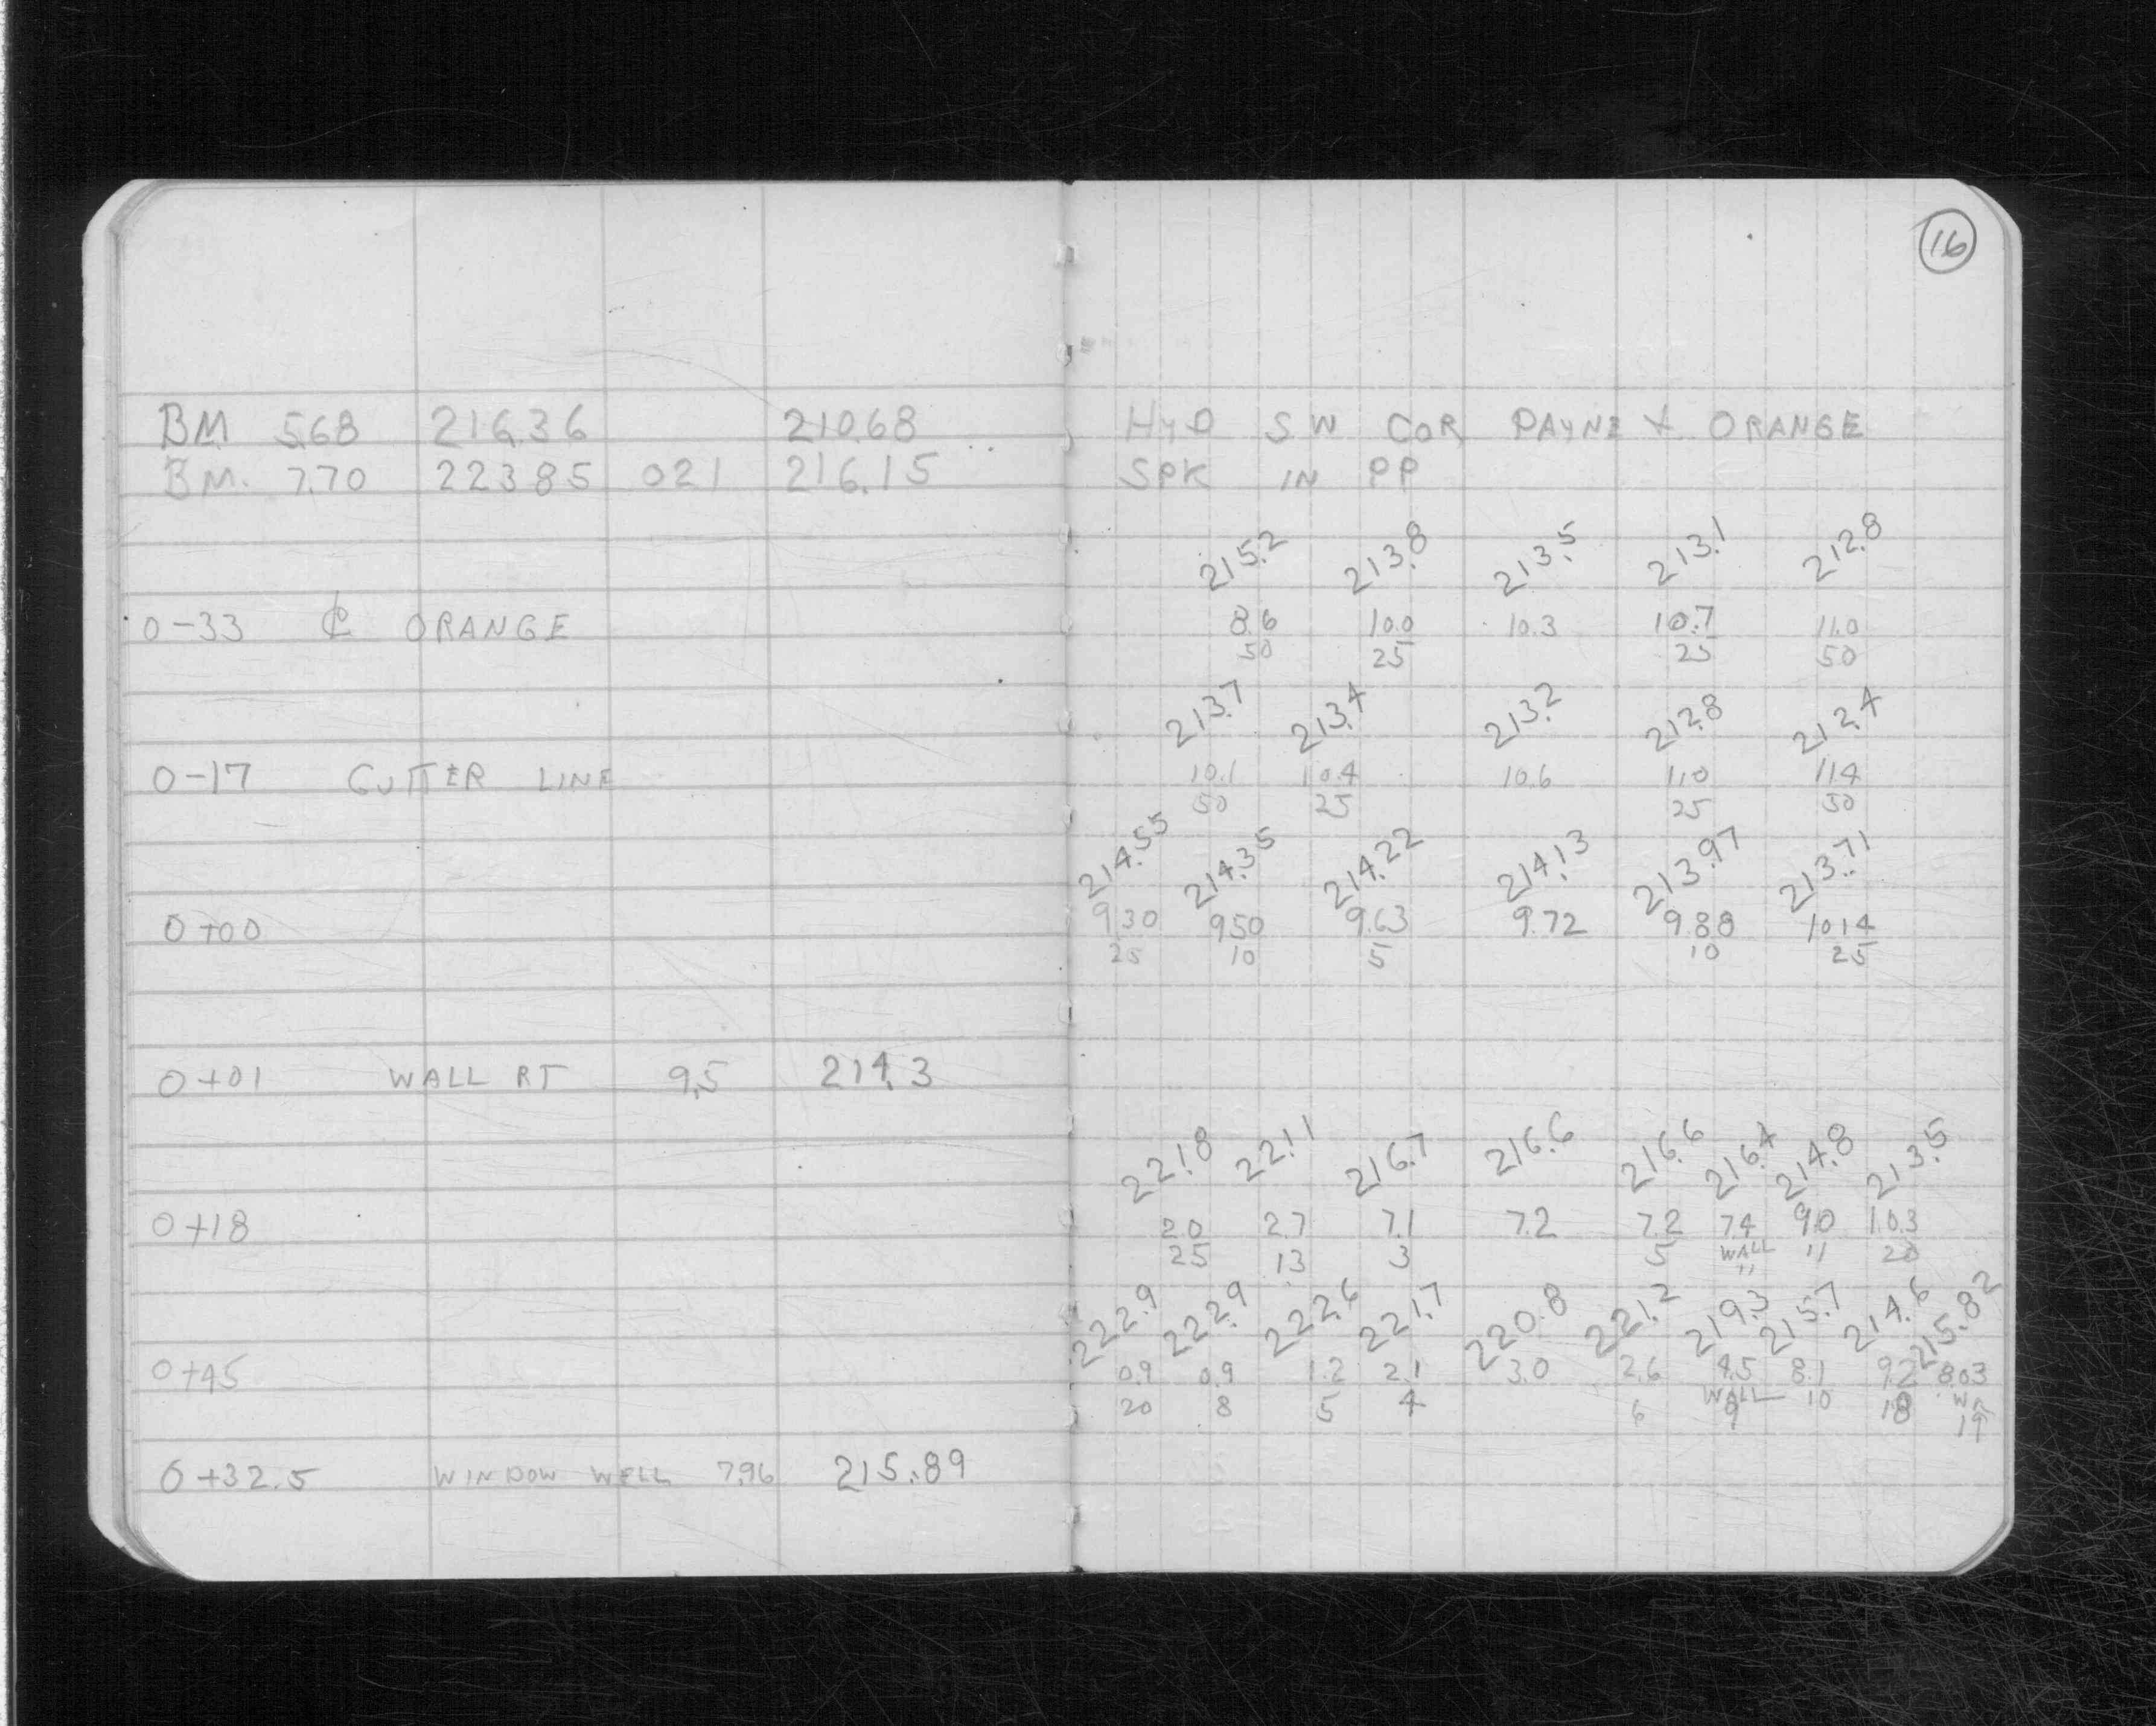 16
BM 5.68 216.36 210.68 HYD SW COR PAYNE & ORANGE
BM. 7.70 223.85 0.21 216.15 SPK IN PP
215.2 213.8 213.5 213.1 212.8
0-33 ℄ ORANGE 8.6 10.0 10.3 10.7 11.0
50 25 25 50
213.7 213.4 213.2 212.8 212.4
0-17 GUTTER LINE 10.1 10.4 10.6 11.0 11.4
50 25 25 50
214.55 214.35 214.22 214.13 213.97 213.71
0+00 9.30 9.50 9.63 9.72 9.88 10.14
25 10 5 10 25
0+01 WALL RT 9.5 214.3
221.8 221.1 216.7 216.6 216.6 216.4 214.8 213.5
0+18 2.0 2.7 7.1 7.2 7.2 7.4 9.0 10.3
25 13 3 5 WALL 11 20
11
222.9 222.9 222.6 221.7 220.8 221.2 219.3 215.7 214.6 215.82
0+45 0.9 0.9 1.2 2.1 3.0 2.6 4.5 8.1 9.2 8.03
20 8 5 4 6 WALL 10 18
9 19
0+32.5 WINDOW WELL 7.96 215.89